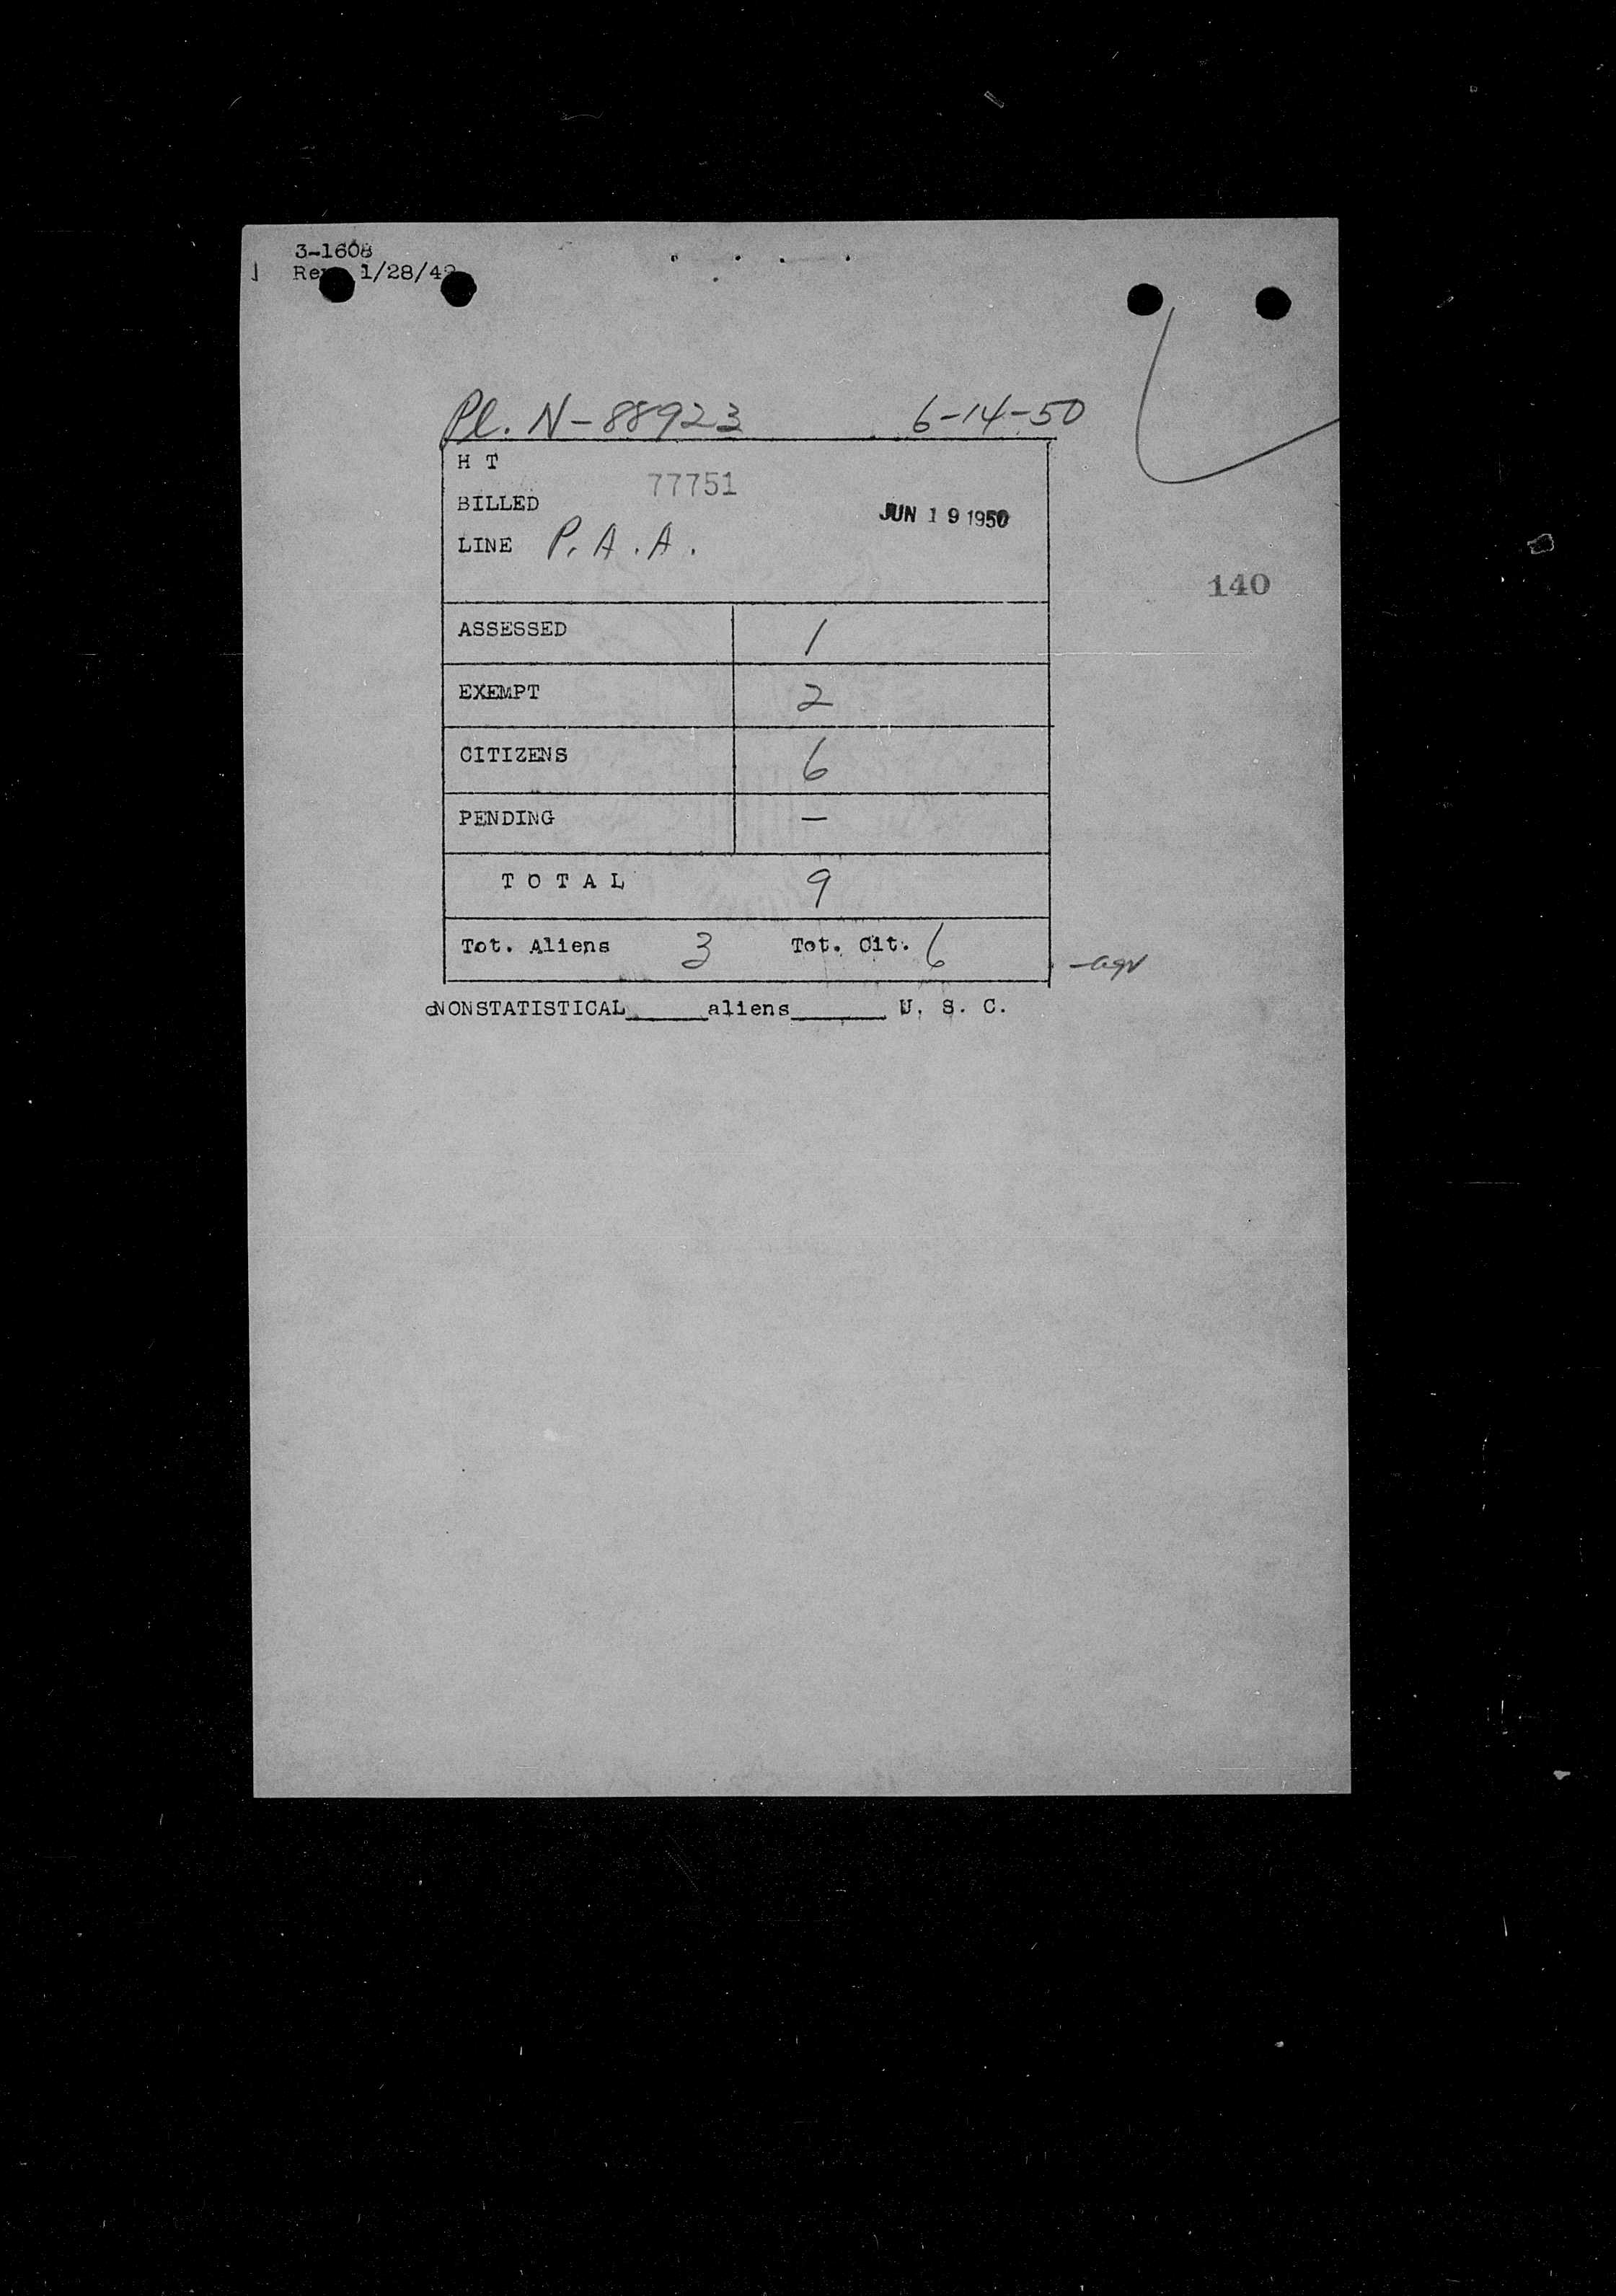 3-1608
Rev. 1/28/48
Pl. N-88923 6-14-50
H T
77751
BILLED
JUN 19 1950
LINE P. A. A.
140
ASSESSED 1
EXEMPT 2
CITIZENS 6
PENDING —
T O T A L 9
Tot. Aliens 3 Tot. Cit. 6
NONSTATISTICAL______aliens_______ U. S. C.